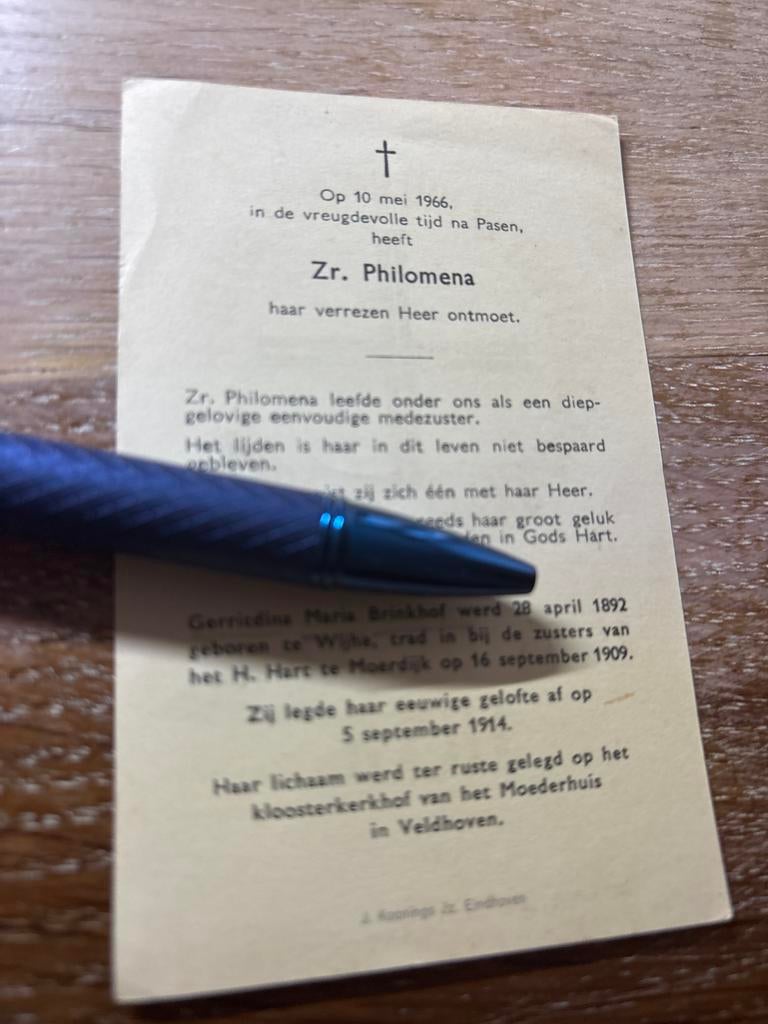 Op 10 mei 1966,
in de vreugdevolle tijd na Pasen,
heeft
Zr. Philomena
haar verrezen Heer ontmoet.
Zr. Philomena leefde onder ons als een diep-
gelovige eenvoudige medezuster.
Het lijden is haar in dit leven niet bespaard
gebleven.
zij zich één met haar Heer.
haar groot geluk
in Gods Hart.
Gerritdina Maria Brinkhof werd 28 april 1892
geboren te Wijhe, trad in bij de zusters van
het H. Hart te Moerdijk op 16 september 1909.
Zij legde haar eeuwige gelofte af op
5 september 1914.
Haar lichaam werd ter ruste gelegd op het
kloosterkerkhof van het Moederhuis
in Veldhoven.
J. Koonings Jz. Eindhoven